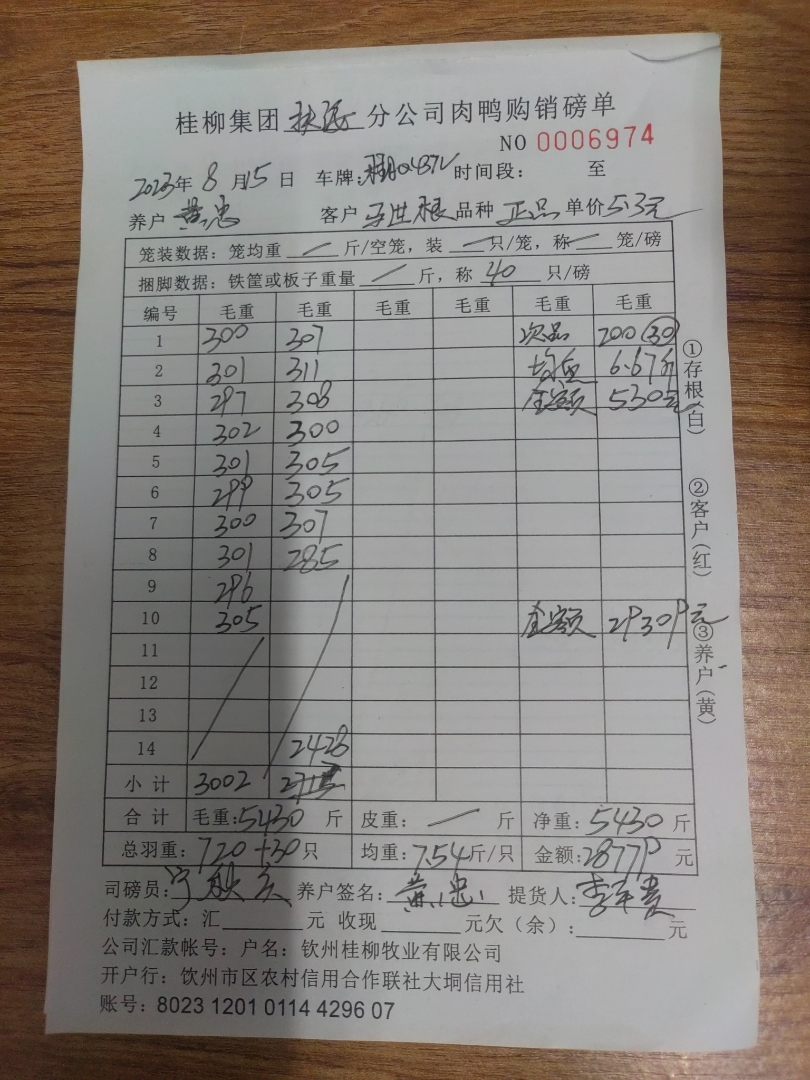 桂柳集团 分公司肉鸭购销磅单
NO 0006974
2023年 8月15日 车牌: 时间段: 至
养户 黄忠 客户 马世根 品种 正品 单价 5.3元
笼装数据:笼均重 / 斤/空笼,装 / 只/笼,称 / 笼/磅
捆脚数据:铁筐或板子重量 / 斤,称 40 只/磅
编号 毛重 毛重 毛重 毛重 毛重 毛重
1 300 307 次品 200 (30)
2 301 311 均重 6.67斤
3 297 308 金额 530元
4 302 300
5 301 305
6 299 305
7 300 307
8 301 285
9 296
10 305 金额 29309元
11
12
13
14 2428
小计 3002
合计 毛重:5430斤 皮重: / 斤 净重:5430斤
总羽重:720+30只 均重:7.54斤/只 金额:28779元
司磅员: 养户签名:黄忠 提货人:
付款方式:汇 元 收现 元欠(余): 元
公司汇款帐号:户名:钦州桂柳牧业有限公司
开户行:钦州市区农村信用合作联社大垌信用社
账号:8023 1201 0114 4296 07
①存根(白)
②客户(红)
③养户(黄)